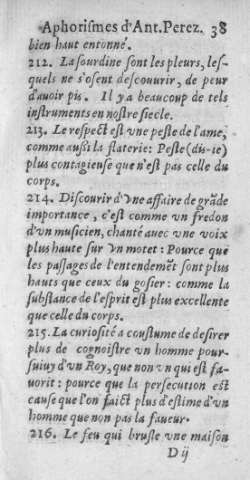 Aphorismes d'Ant. Perez. 38
bien haut entonné.
212. La sourdine sont les pleurs, les-
quels ne s'osent descouurir, de peur
d'auoir pis. Il y a beaucoup de tels
instruments en nostre siecle.
213. Le respect est vne peste de l'ame,
comme aussi la flaterie: Peste (dis-ie)
plus contagieuse que n'est pas celle du
corps.
214. Discourir d'vne affaire de grāde
importance, c'est comme vn fredon
d'vn musicien, chanté auec vne voix
plus haute sur vn motet: Pource que
les passages de l'entendemēt sont plus
hauts que ceux du gosier: comme la
substance de l'esprit est plus excellente
que celle du corps.
215. La curiosité a coustume de desirer
plus de cognoistre vn homme pour-
suiuy d'vn Roy, que non vn qui est fa-
uorit: pource que la persecution est
cause que l'on faict plus d'estime d'vn
homme que non pas la faueur.
216. Le feu qui brusle vne maison
D ij